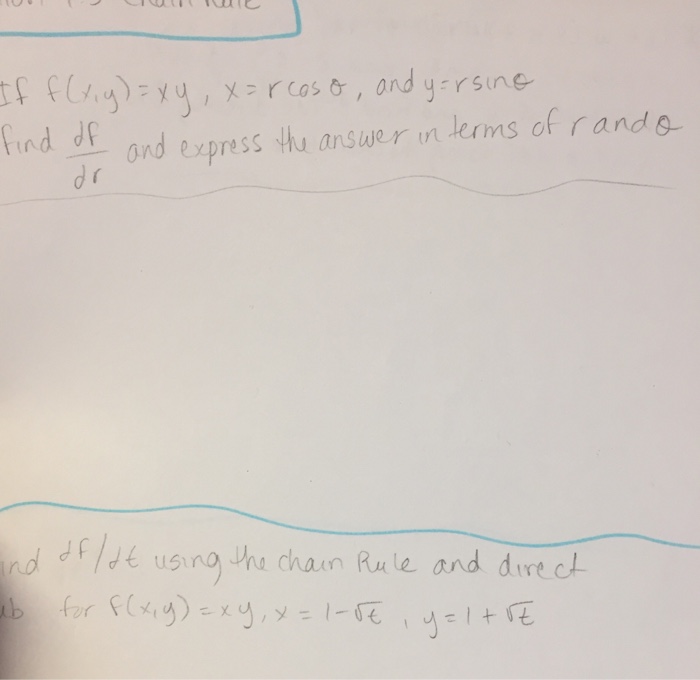 Chain Rule
If f(x,y)=xy, x=rcosθ, and y=rsinθ
find df/dr and express the answer in terms of r and θ
df/dt using the chain Rule and direct
for f(x,y)=xy, x=1-√t, y=1+√t